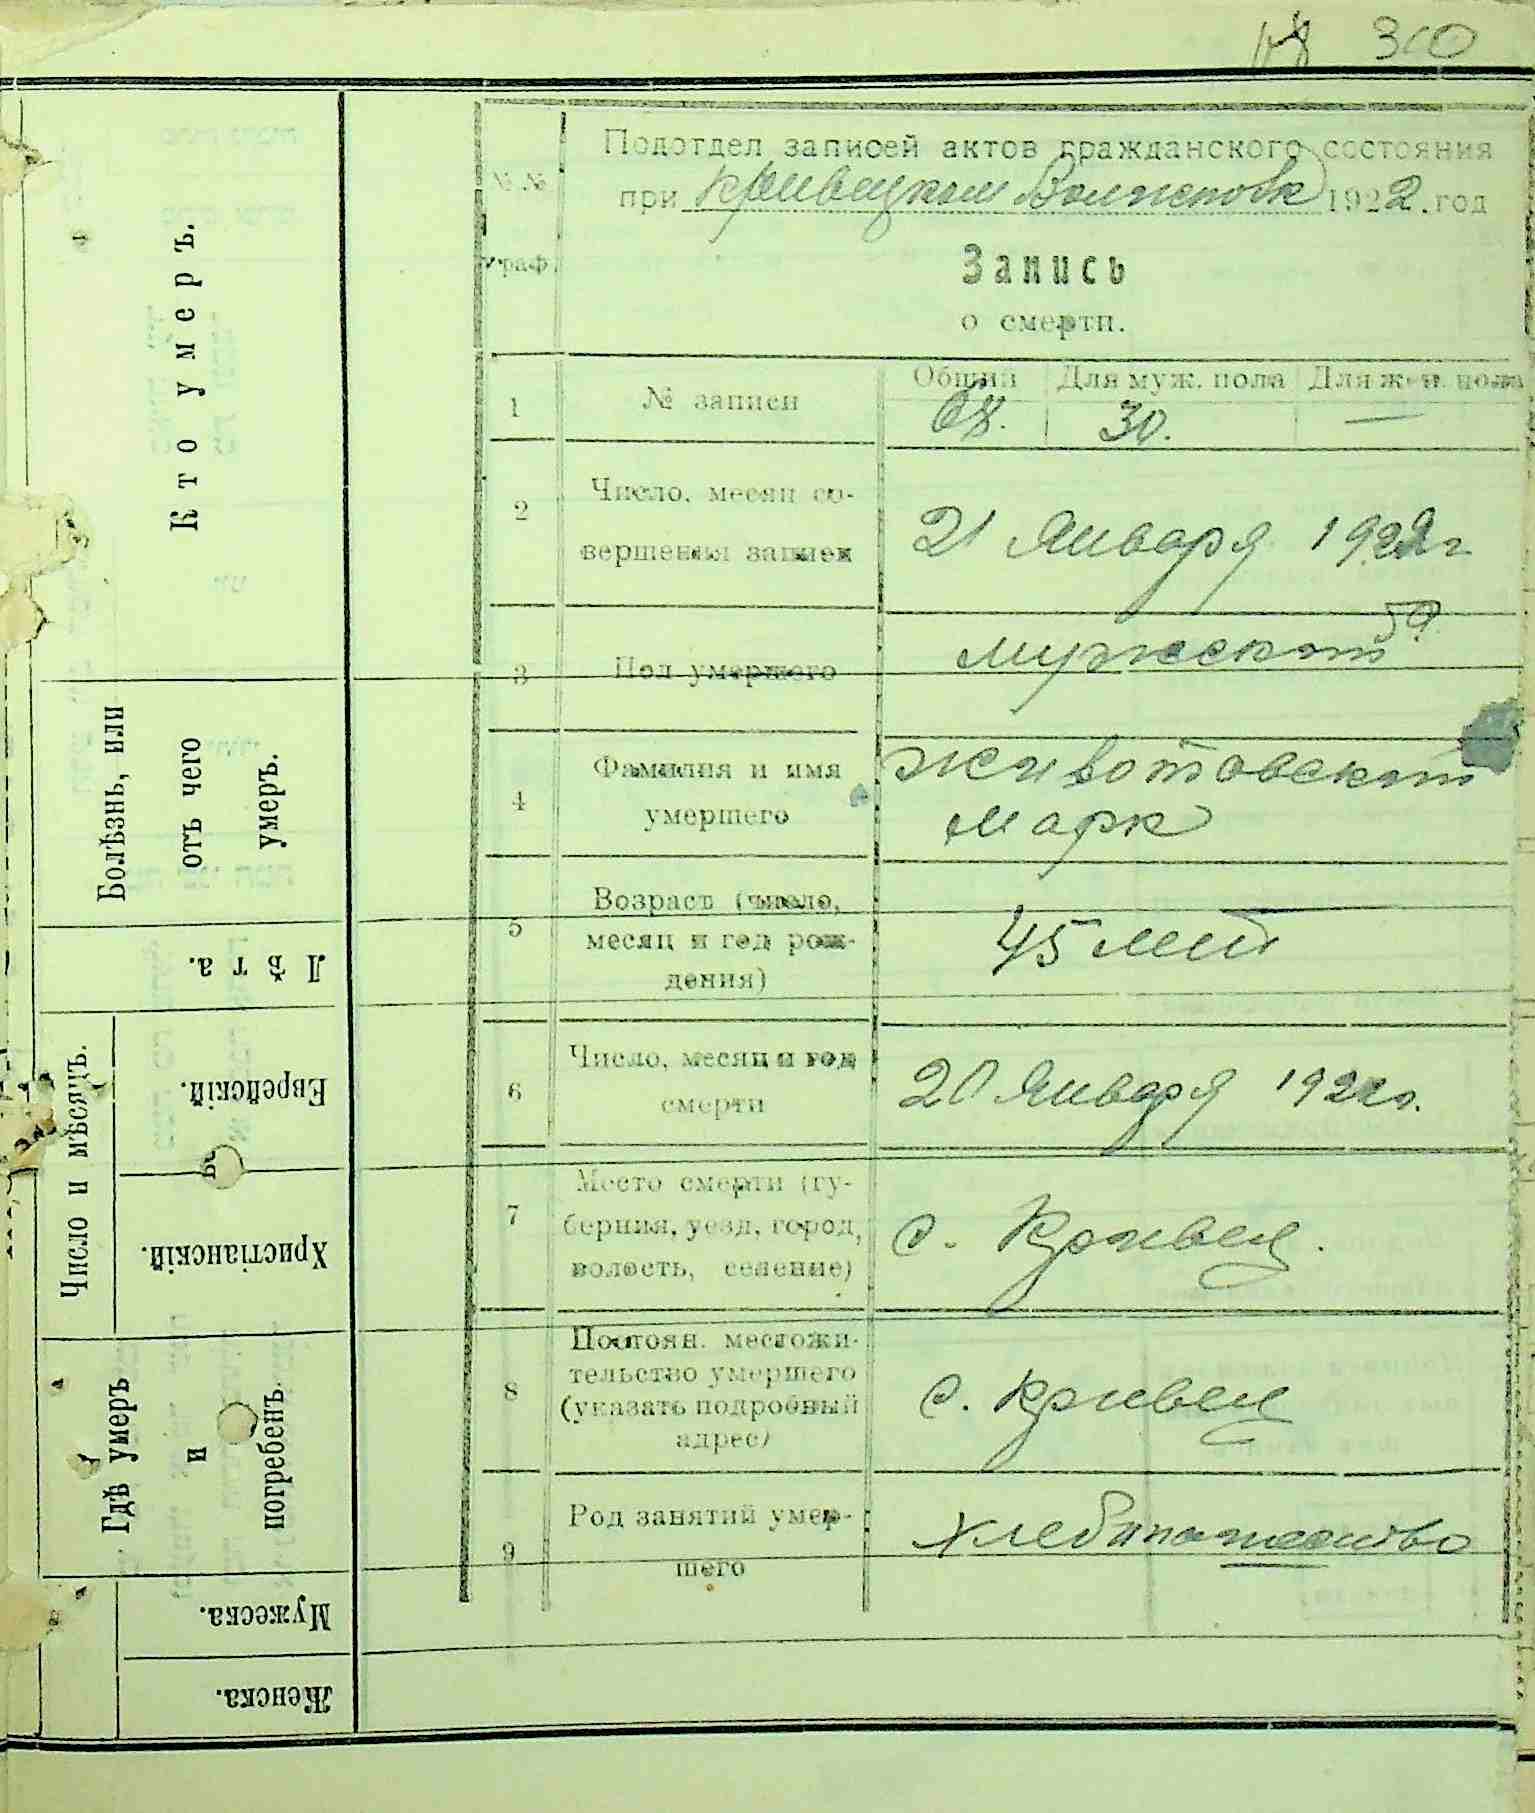 300
Подотдел записей актов гражданского состояния
при Кривецком 1922. год
№.№.
граф.
Запись
о смерти.
1 № записи
Общий Для муж. пола Для жен. пола
68. 30. —
2 Число, месяц со-
вершения записи
21 Января 1922 г
3 Пол умершего
мужской
4 Фамилия и имя
умершего
Животовский
Марк
5 Возраст (число,
месяц и год рож-
дения)
45 лет
6 Число, месяц и год
смерти
20 Января 1922 г.
7 Место смерти (гу-
берния, уезд, город,
волость, селение)
с. Кривец.
8 Постоян. местожи-
тельство умершего
(указать подробный
адрес)
с. Кривец
9 Род занятий умер-
шего
Кто умеръ.
Болѣзнь, или
отъ чего
умеръ.
Лѣта.
Число и мѣсяцъ.
Еврейскій.
Христіанскій.
Гдѣ умеръ
и
погребенъ.
Мужеска.
Женска.